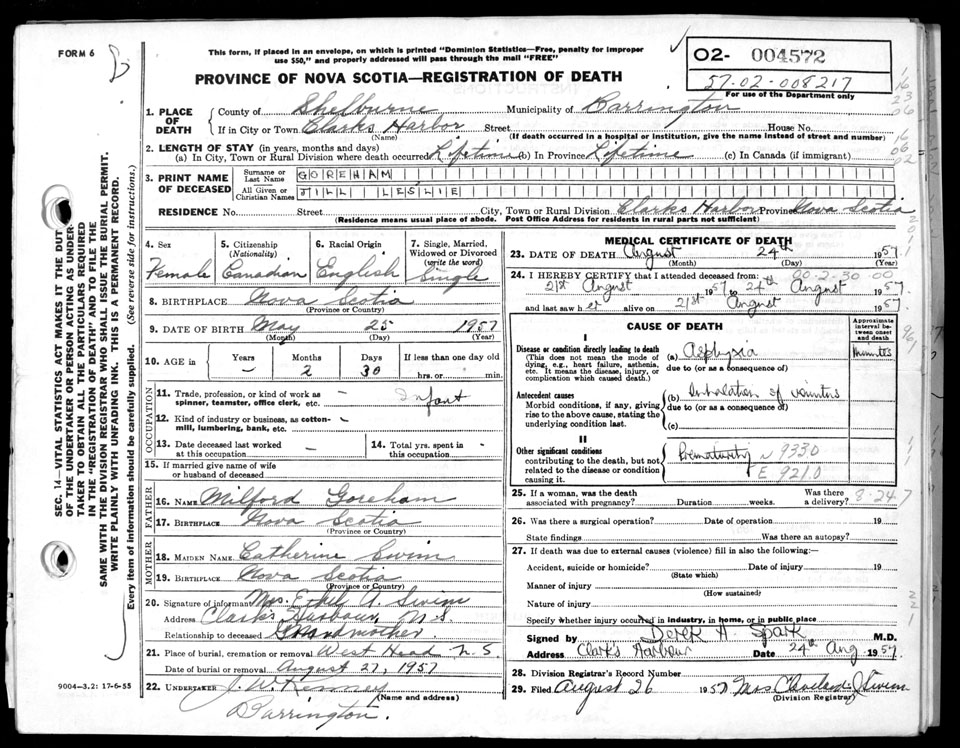 FORM 6
This form, if placed in an envelope, on which is printed "Dominion Statistics—Free, penalty for improper
use $50," and properly addressed will pass through the mail "FREE"
PROVINCE OF NOVA SCOTIA—REGISTRATION OF DEATH
02- 004572
57-02-008217
For use of the Department only
1. PLACE OF DEATH
County of Shelburne Municipality of Barrington
If in City or Town Clarks Harbor Street House No.
(Name) (If death occurred in a hospital or institution, give the name instead of street and number)
2. LENGTH OF STAY (in years, months and days)
(a) In City, Town or Rural Division where death occurred Lifetime (b) In Province Lifetime (c) In Canada (if immigrant)
3. PRINT NAME OF DECEASED
Surname or Last Name GOREHAM
All Given or Christian Names JILL LESLIE
RESIDENCE No. Street City, Town or Rural Division Clarks Harbor Province Nova Scotia
(Residence means usual place of abode. Post Office Address for residents in rural parts not sufficient)
4. Sex Female
5. Citizenship (Nationality) Canadian
6. Racial Origin English
7. Single, Married, Widowed or Divorced (write the word) Single
8. BIRTHPLACE Nova Scotia
(Province or Country)
9. DATE OF BIRTH May 25 1957
(Month) (Day) (Year)
10. AGE in Years Months Days If less than one day old
– 2 30 hrs. or min.
OCCUPATION
11. Trade, profession, or kind of work as spinner, teamster, office clerk, etc. – Infant
12. Kind of industry or business, as cotton-mill, lumbering, bank, etc. –
13. Date deceased last worked at this occupation –
14. Total yrs. spent in this occupation -
15. If married give name of wife or husband of deceased
FATHER
16. NAME Milford Goreham
17. BIRTHPLACE Nova Scotia
(Province or Country)
MOTHER
18. MAIDEN NAME Catherine Swim
19. BIRTHPLACE Nova Scotia
(Province or Country)
20. Signature of informant Mrs. Ethel A. Swim
Address Clark's Harbour N.S.
Relationship to deceased Grandmother.
21. Place of burial, cremation or removal West Head N.S.
Date of burial or removal August 27, 1957
22. UNDERTAKER J. W. Kenney
(Name and address)
Barrington.
MEDICAL CERTIFICATE OF DEATH
23. DATE OF DEATH August 24th 1957
(Month) (Day) (Year)
24. I HEREBY CERTIFY that I attended deceased from: 00-2-30-00
21st August 1957 to 24th August 1957.
and last saw her alive on 21st August 1957.
CAUSE OF DEATH
Approximate interval between onset and death
I
Disease or condition directly leading to death (a) Asphyxia minutes
(This does not mean the mode of dying, e.g., heart failure, asthenia, etc. It means the disease, injury, or complication which caused death.)
due to (or as a consequence of)
Antecedent causes (b) Inhalation of vomitus
Morbid conditions, if any, giving rise to the above cause, stating the underlying condition last.
due to (or as a consequence of)
(c)
II
Other significant conditions contributing to the death, but not related to the disease or condition causing it.
Prematurity N 9330
E 9210
25. If a woman, was the death associated with pregnancy? Duration weeks. Was there a delivery? 8-24-7
26. Was there a surgical operation? Date of operation 19
State findings Was there an autopsy?
27. If death was due to external causes (violence) fill in also the following:—
Accident, suicide or homicide? Date of injury 19
(State which)
Manner of injury
(How sustained)
Nature of injury
Specify whether injury occurred in industry, in home, or in public place
Signed by Derek A. Spark M.D.
Address Clark's Harbour Date 24th Aug 1957.
28. Division Registrar's Record Number
29. Filed August 26 1957 Mrs Cleveland J Swim
(Division Registrar)
SEC. 14—VITAL STATISTICS ACT MAKES IT THE DUTY
OF THE UNDERTAKER OR PERSON ACTING AS UNDER-
TAKER TO OBTAIN ALL THE PARTICULARS REQUIRED
IN THE "REGISTRATION OF DEATH" AND TO FILE THE
SAME WITH THE DIVISION REGISTRAR WHO SHALL ISSUE THE BURIAL PERMIT.
WRITE PLAINLY WITH UNFADING INK. THIS IS A PERMANENT RECORD.
Every item of information should be carefully supplied. (See reverse side for instructions.)
9004—3.2: 17-6-55